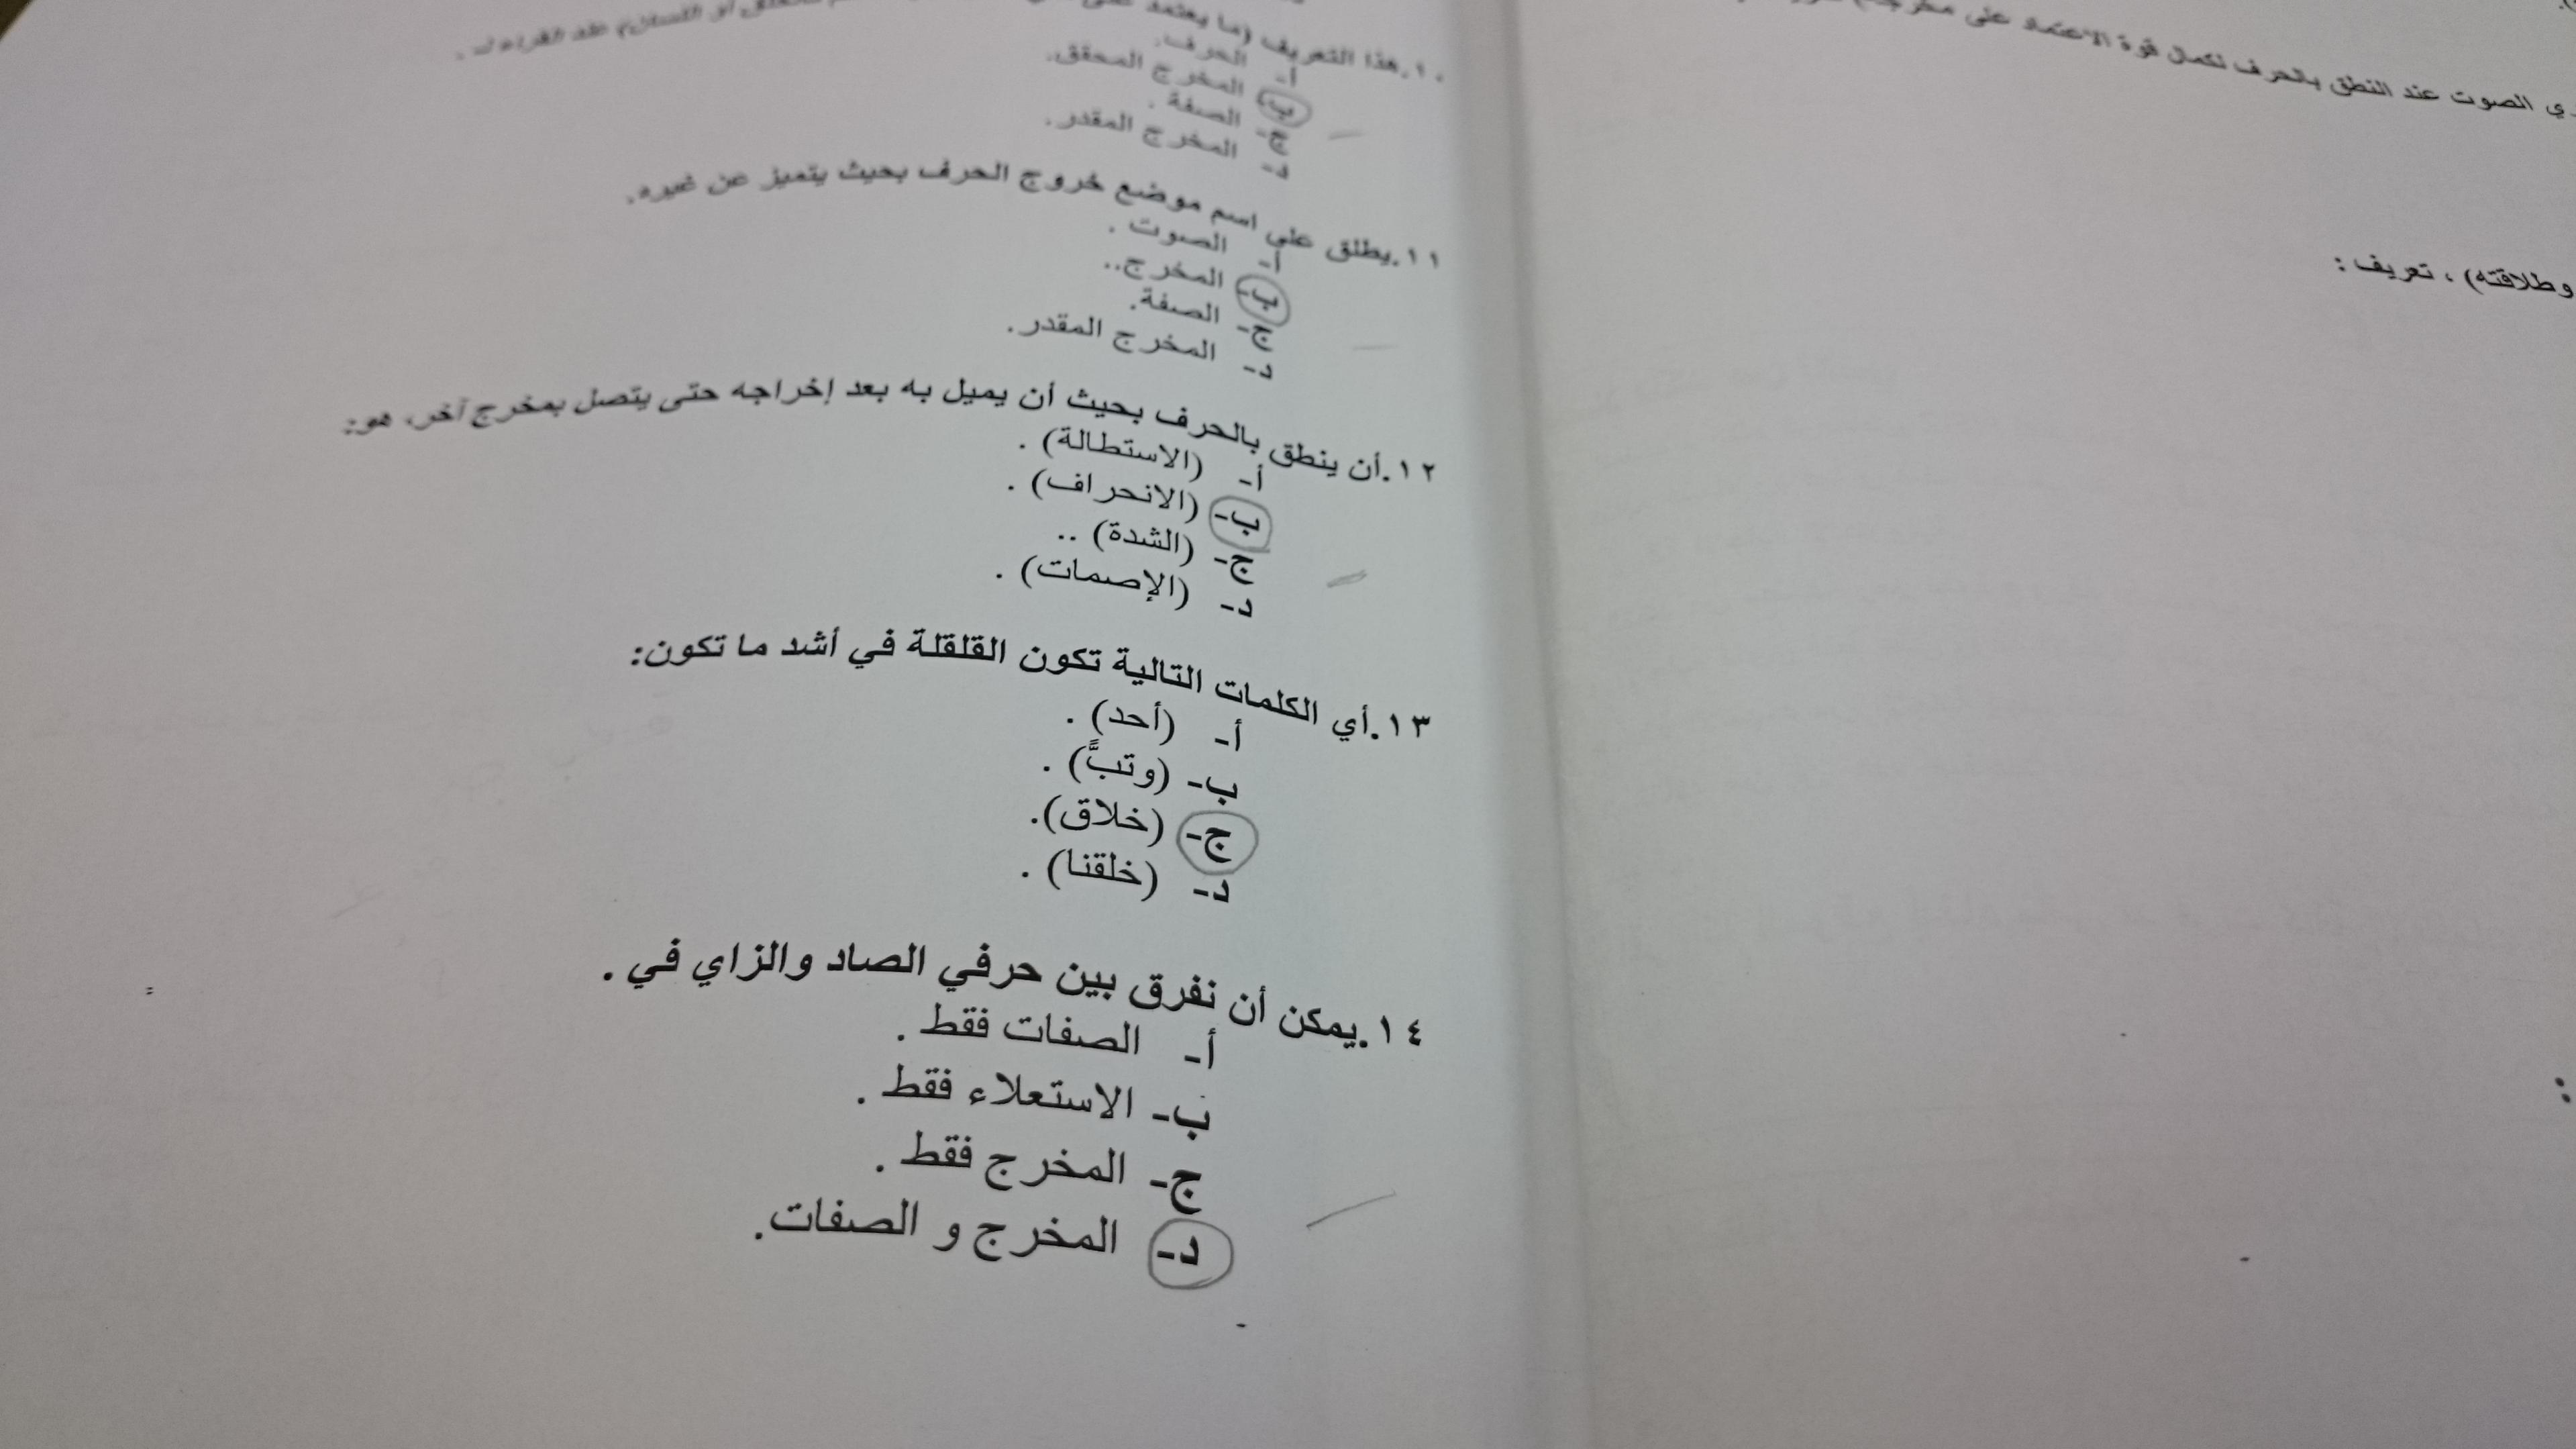 ١٠.هذا التعريف (ما يعتمد على
أو اللسان) عند القراء لـ .
أ- الحرف.
ب- المخرج المحقق.
ج- الصفة .
د- المخرج المقدر.
١١.يطلق على اسم موضع خروج الحرف بحيث يتميز عن غيره.
أ- الصوت .
ب- المخرج..
ج- الصفة.
د- المخرج المقدر.
١٢.أن ينطق بالحرف بحيث أن يميل به بعد إخراجه حتى يتصل بمخرج آخر، هو:
أ- (الاستطالة) .
ب- (الانحراف) .
ج- (الشدة) ..
د- (الإصمات) .
١٣.أي الكلمات التالية تكون القلقلة في أشد ما تكون:
أ- (أحد) .
ب- (وتبَّ) .
ج- (خلاق).
د- (خلقنا) .
١٤.يمكن أن نفرق بين حرفي الصاد والزاي في .
أ- الصفات فقط .
ب- الاستعلاء فقط .
ج- المخرج فقط .
د- المخرج و الصفات.
الصوت عند النطق بالحرف لكمال قوة الاعتماد على
وطلاقته) ، تعريف :
: